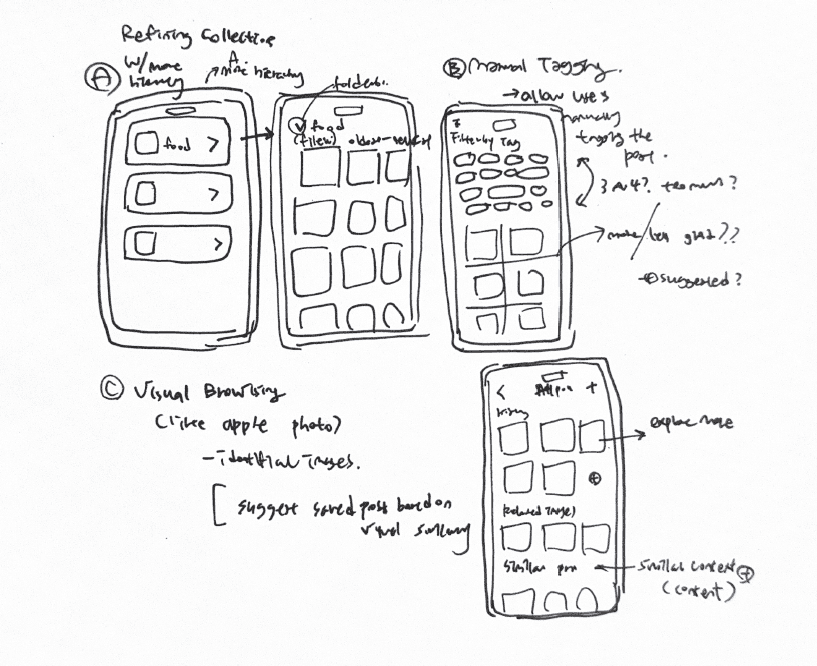 Refining Collection
A
w/ more
hierarchy
A
more hierarchy
folders.
food
food
(filter) oldest - newest
B Manual Tagging.
→ allow users
manually
tagging the
post.
Filter by Tag
3 or 4? too much?
→ more/less grid??
→ + suggested?
C Visual Browsing
(like apple photo)
- identical images.
[ suggest saved post based on
visual similarity
< All post +
→ explore more
+
(related images)
Similar post
similar content +
(content)